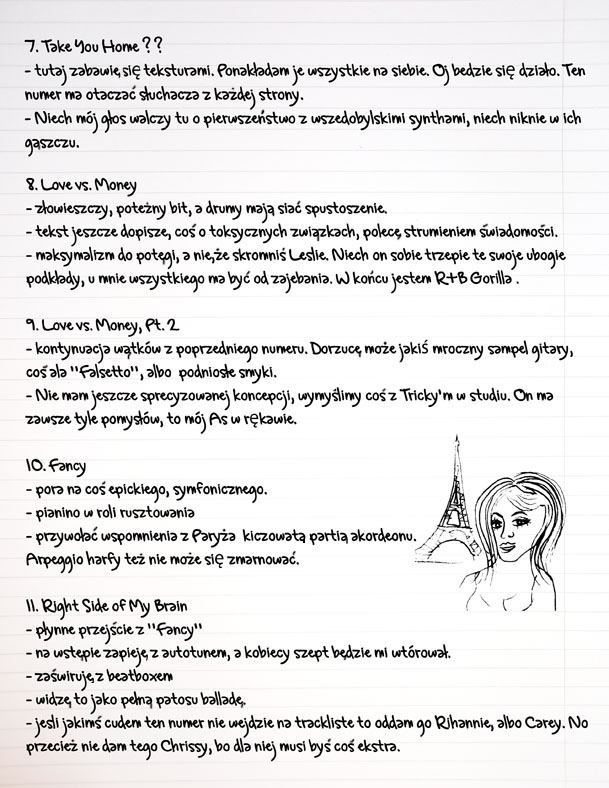 7. Take You Home ??
- tutaj zabawię się teksturami. Ponakładam je wszystkie na siebie. Oj bedzie się działo. Ten
numer ma otaczać słuchacza z każdej strony.
- Niech mój głos walczy tu o pierwszeństwo z wszedobylskimi synthami, niech niknie w ich
gąszczu.
8. Love vs. Money
- złowieszczy, poteżny bit, a drumy mają siać spustoszenie.
- tekst jeszcze dopisze, coś o toksycznych związkach, polecę strumieniem świadomości.
- maksymalizm do potęgi, a nie, że skromniś Leslie. Niech on sobie trzepie te swoje ubogie
podkłady, u mnie wszystkiego ma być od zajebania. W końcu jestem R+B Gorilla .
9. Love vs. Money, Pt. 2
- kontynuacja wątków z poprzedniego numeru. Dorzucę może jakiś mroczny sampel gitary,
coś ala "Falsetto", albo podniosłe smyki.
- Nie mam jeszcze sprecyzowanej koncepcji, wymyślimy coś z Tricky'm w studiu. On ma
zawsze tyle pomysłów, to mój As w rękawie.
10. Fancy
- pora na coś epickiego, symfonicznego.
- pianino w roli rusztowania
- przywołać wspomnienia z Paryża kiczowatą partią akordeonu.
Arpeggio harfy też nie może się zmarnować.
11. Right Side of My Brain
- płynne przejście z "Fancy"
- na wstępie zapieję z autotunem, a kobiecy szept będzie mi wtórował.
- zaświruję z beatboxem
- widzę to jako pełną patosu balladę.
- jesli jakimś cudem ten numer nie wejdzie na trackliste to oddam go Rihannie, albo Carey. No
przecież nie dam tego Chrissy, bo dla niej musi byś coś ekstra.